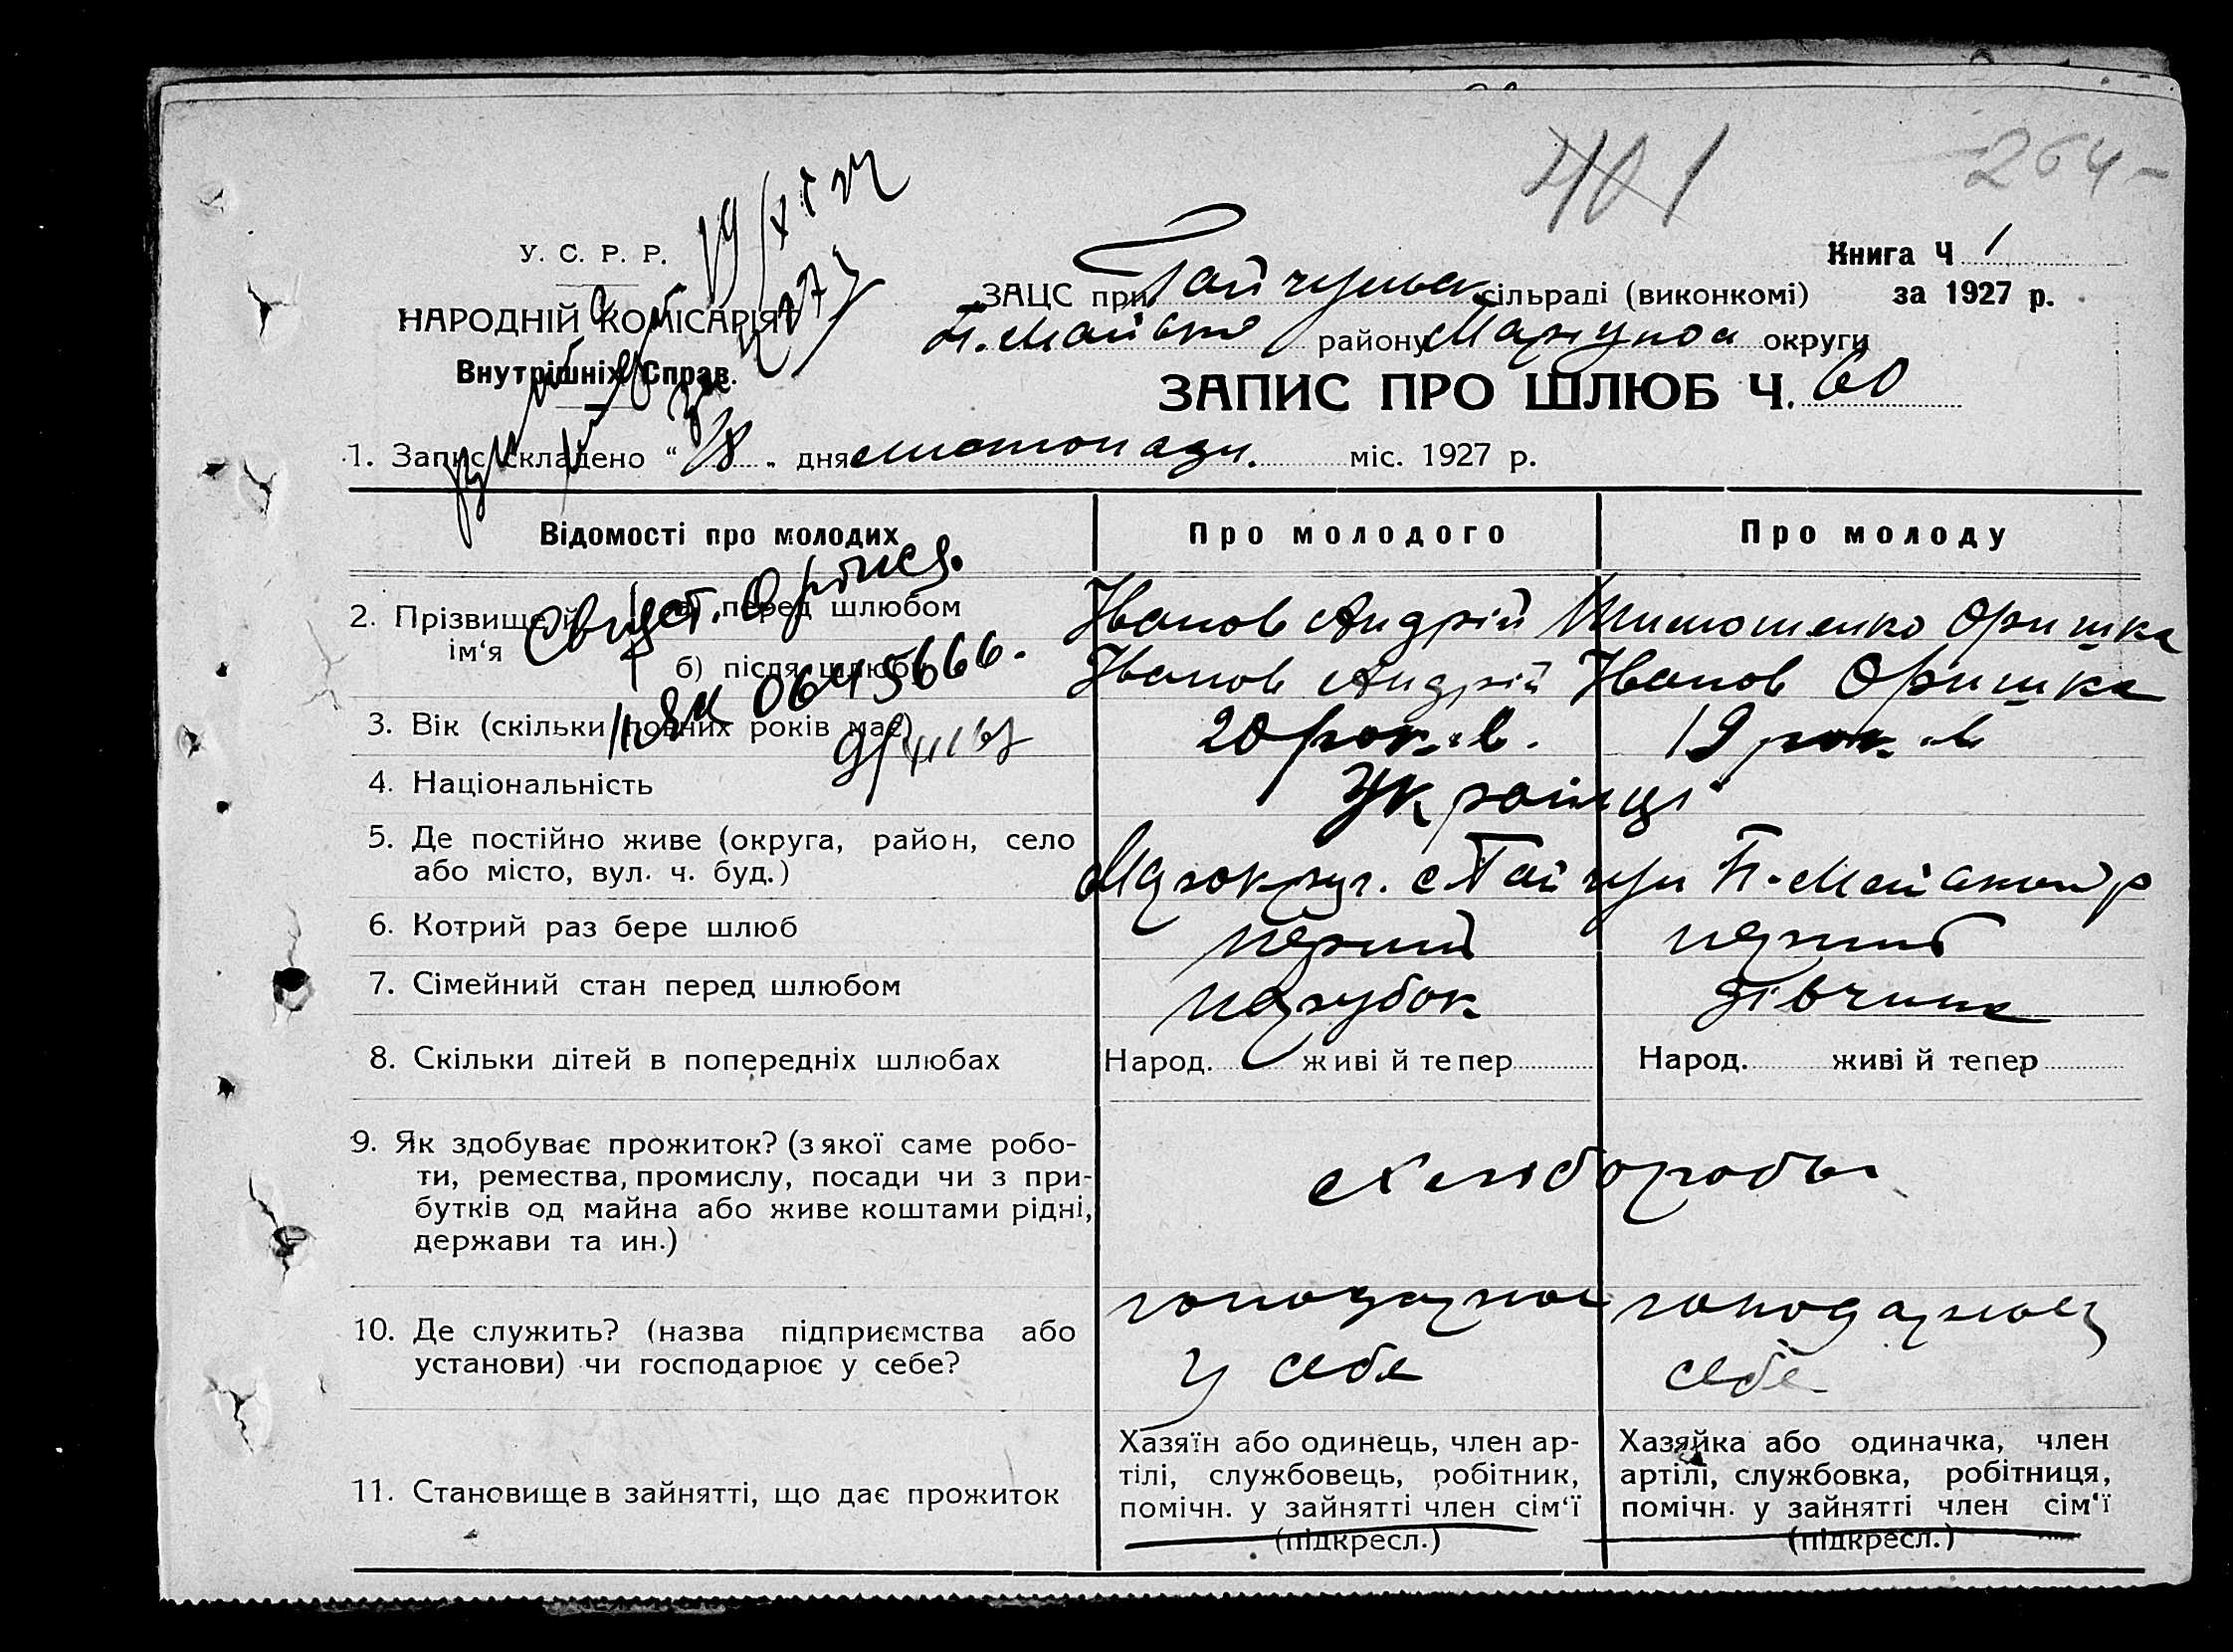 401 264
У. С. Р. Р.
НАРОДНІЙ КОМІСАРІЯТ
Внутрішніх Справ.
Книга Ч 1
ЗАЦС при Гайчульск сільраді (виконкомі) за 1927 р.
П. Майськ району Маріупол округи
ЗАПИС ПРО ШЛЮБ Ч. 60
1. Запис складено "28" дня листопада міс. 1927 р.
Відомості про молодих Про молодого Про молоду
2. Прізвище й ім'я
а) перед шлюбом Іванов Андрій Тимошенко Оришка
б) після шлюбу Іванов Андрій Іванов Оришка
II ЯК 0645666.
3. Вік (скільки повних років має) 20 років. 19 років
4. Національність Українці
5. Де постійно живе (округа, район, село
або місто, вул. ч. буд.) с Гайчул П-Майський р
6. Котрий раз бере шлюб перший перший
7. Сімейний стан перед шлюбом парубок дівчина
8. Скільки дітей в попередніх шлюбах Народ. живі й тепер Народ. живі й тепер
9. Як здобуває прожиток? (з якої саме робо-
ти, ремества, промислу, посади чи з при-
бутків од майна або живе коштами рідні,
держави та ин.)
хлібороби
10. Де служить? (назва підприємства або
установи) чи господарює у себе?
у себе себе
11. Становище в зайнятті, що дає прожиток
Хазяїн або одинець, член ар-
тілі, службовець, робітник,
помічн. у зайнятті член сім'ї
(підкресл.)
Хазяйка або одиначка, член
артілі, службовка, робітниця,
помічн. у зайнятті член сім'ї
(підкресл.)